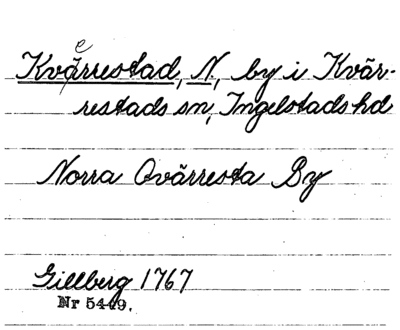 Kvärrestad, N, by i Kvär-
restads sn, Ingelstads hd
Norra Qvärresta By
Gillberg 1767
Nr 5449.